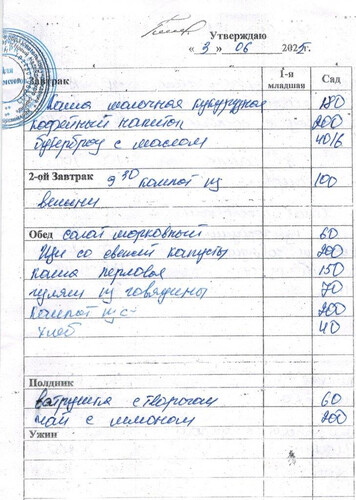 Утверждаю
« 3 » 06 2025г.
Завтрак 1-я младшая Сад
Каша молочная кукурузная 180
кофейный напиток 200
бутерброд с маслом 40/6
2-ой Завтрак 9 30 компот из 100
вишни
Обед салат морковный 60
Щи со свежей капусты 200
каша перловая 150
гуляш из говядины 70
компот из с- 200
хлеб 40
Полдник
ватрушка с творогом 60
чай с лимоном 200
Ужин